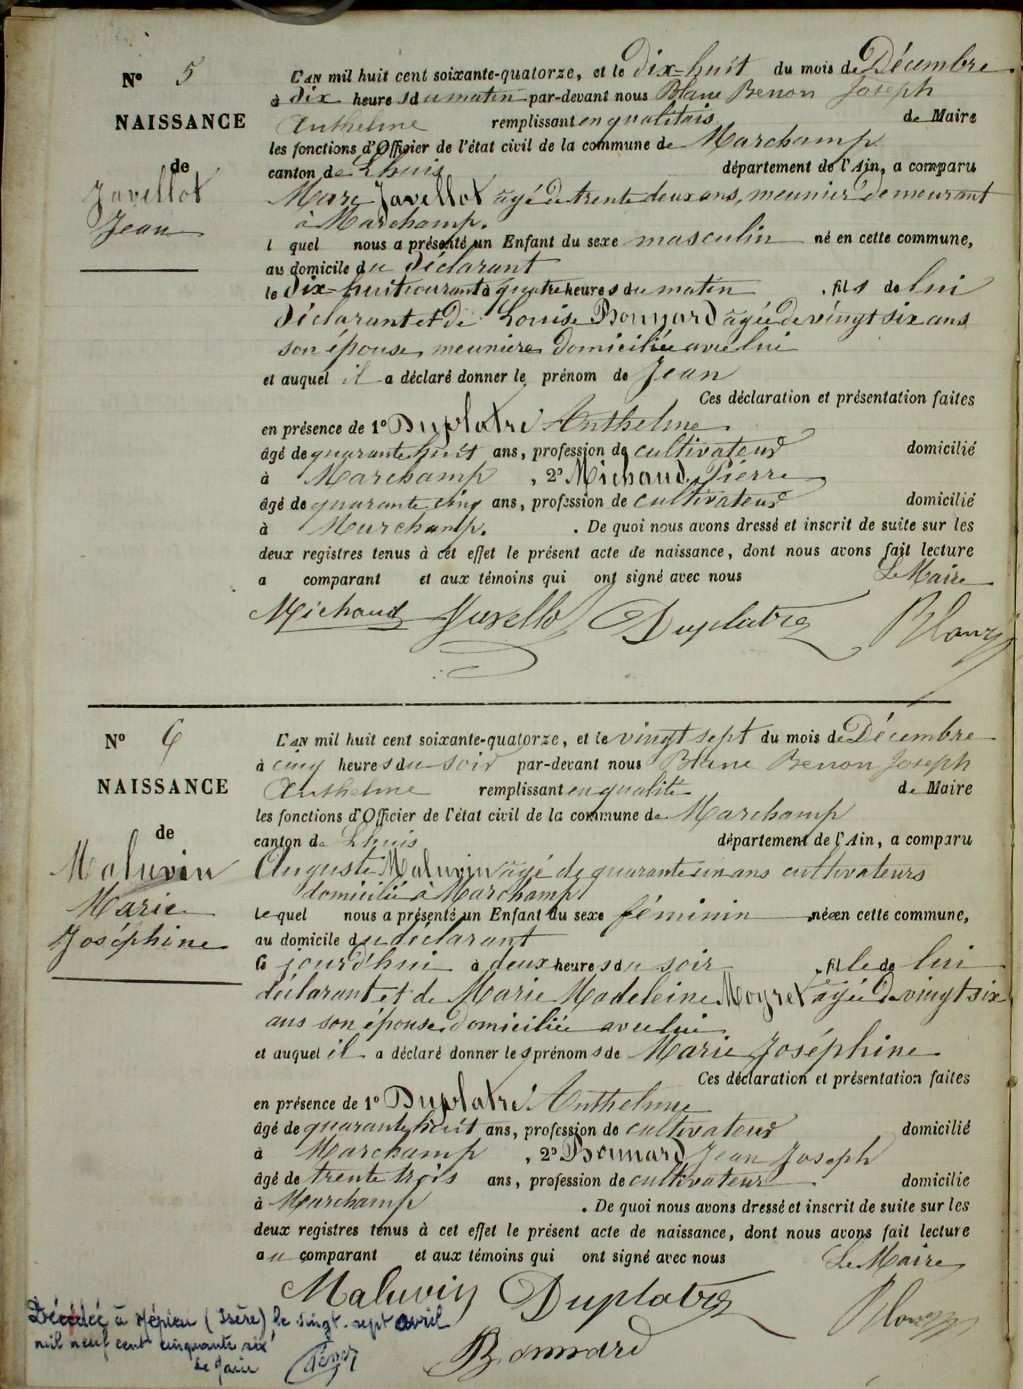 N° 5
NAISSANCE
de
Javellot
Jean
L'AN mil huit cent soixante-quatorze, et le dix-huit du mois de Décembre
à dix heures du matin par-devant nous Blanc Benon Joseph
Anthelme remplissant en qualité de Maire
les fonctions d'Officier de l'état civil de la commune de Marchamp
canton de Lhuis département de l'Ain, a comparu
Marc Javellot âgé de trente deux ans, meunier demeurant
à Marchamp.
l quel nous a présenté un Enfant du sexe masculin né en cette commune,
au domicile du déclarant
le dix-huit courant à quatre heures du matin, fils de lui
déclarant et de Louise Bonnard âgée de vingt six ans
son épouse, meunière domiciliée avec lui
et auquel il a déclaré donner le prénom de Jean
Ces déclaration et présentation faites
en présence de 1° Duplatre Anthelme
âgé de quarante huit ans, profession de cultivateur domicilié
à Marchamp, 2° Michaud Pierre
âgé de quarante cinq ans, profession de cultivateur domicilié
à Marchamp. . De quoi nous avons dressé et inscrit de suite sur les
deux registres tenus à cet effet le présent acte de naissance, dont nous avons fait lecture
a comparant et aux témoins qui ont signé avec nous Le Maire
Michaud Javellot Duplatre Blanc
N° 6
NAISSANCE
de
Maluvin
Marie
Joséphine
L'AN mil huit cent soixante-quatorze, et le vingt sept du mois de Décembre
à cinq heures du soir par-devant nous Blanc Benon Joseph
Anthelme remplissant en qualité de Maire
les fonctions d'Officier de l'état civil de la commune de Marchamp
canton de Lhuis département de l'Ain, a comparu
Auguste Maluvin âgé de quarante un ans cultivateurs
domicilié à Marchamp
le quel nous a présenté un Enfant du sexe féminin née en cette commune,
au domicile du déclarant
le jourd'hui à deux heures du soir, fille de lui
déclarant et de Marie Madeleine Moyret âgée de vingt six
ans son épouse domiciliée avec lui
et auquel il a déclaré donner les prénoms de Marie Joséphine
Ces déclaration et présentation faites
en présence de 1° Duplatre Anthelme
âgé de quarante huit ans, profession de cultivateur domicilié
à Marchamp, 2° Bonnard Jean Joseph
âgé de trente trois ans, profession de cultivateur domicilié
à Marchamp . De quoi nous avons dressé et inscrit de suite sur les
deux registres tenus à cet effet le présent acte de naissance, dont nous avons fait lecture
au comparant et aux témoins qui ont signé avec nous Le Maire
Maluvin Duplatre Blanc
Bonnard
Décédée à Mépieu (Isère) le vingt-sept avril
mil neuf cent cinquante six
Le Maire